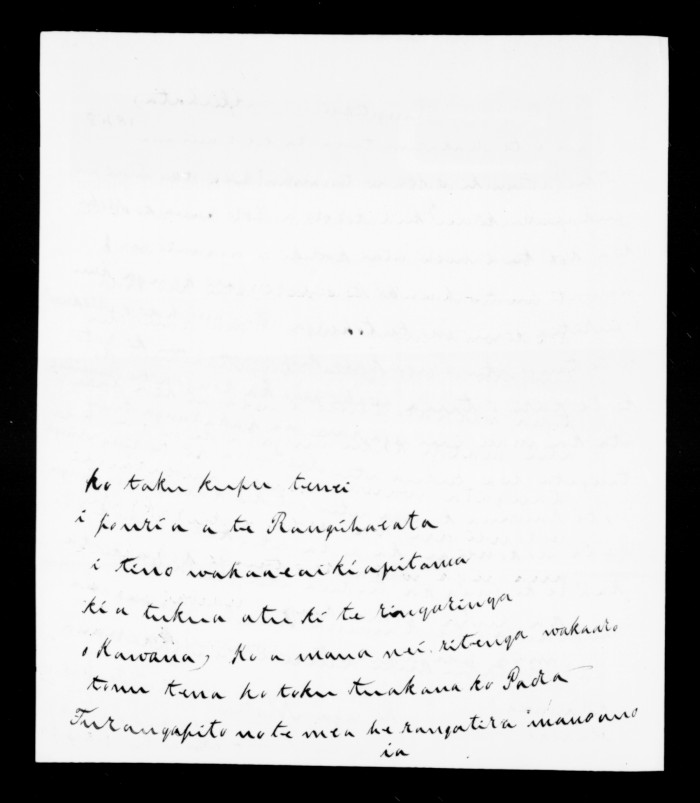 ko taku kupu tenei
i pouri a a te Rangihaeata
i teno wakaaeaikiapitama
ki a tukua atu ki te ringaringa
o Kawana, Ko a mana nei ritenga wakaaro
tonu tena ko toku tuakana ko
Turangapito no te mea he rangatira manoano
ia